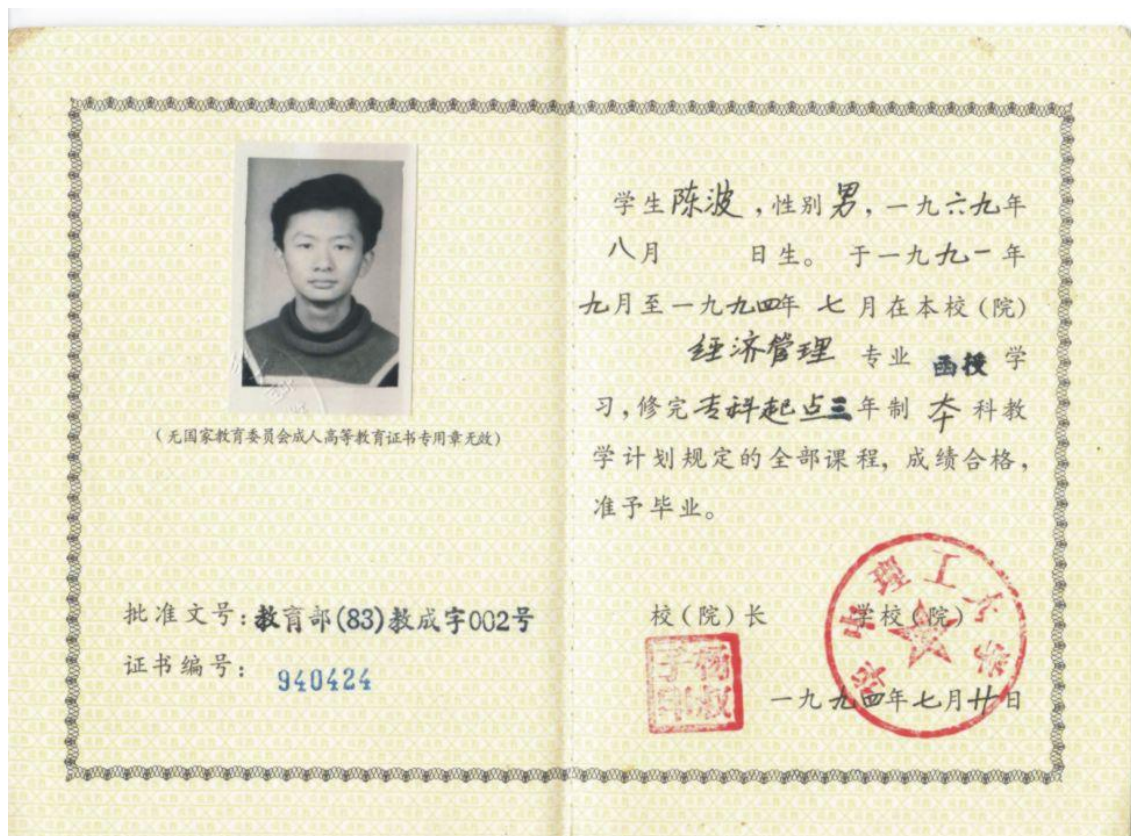 (无国家教育委员会成人高等教育证书专用章无效)
批准文号:教育部(83)教成字002号
证书编号:940424
学生陈波,性别男,一九六九年
八月 日生。于一九九一年
九月至一九九四年七月在本校(院)
经济管理 专业 函授 学
习,修完专科起点三年制 本 科教
学计划规定的全部课程,成绩合格,
准予毕业。
校(院)长 学校(院)
华中理工大学
杨叔子印
一九九四年七月廿日